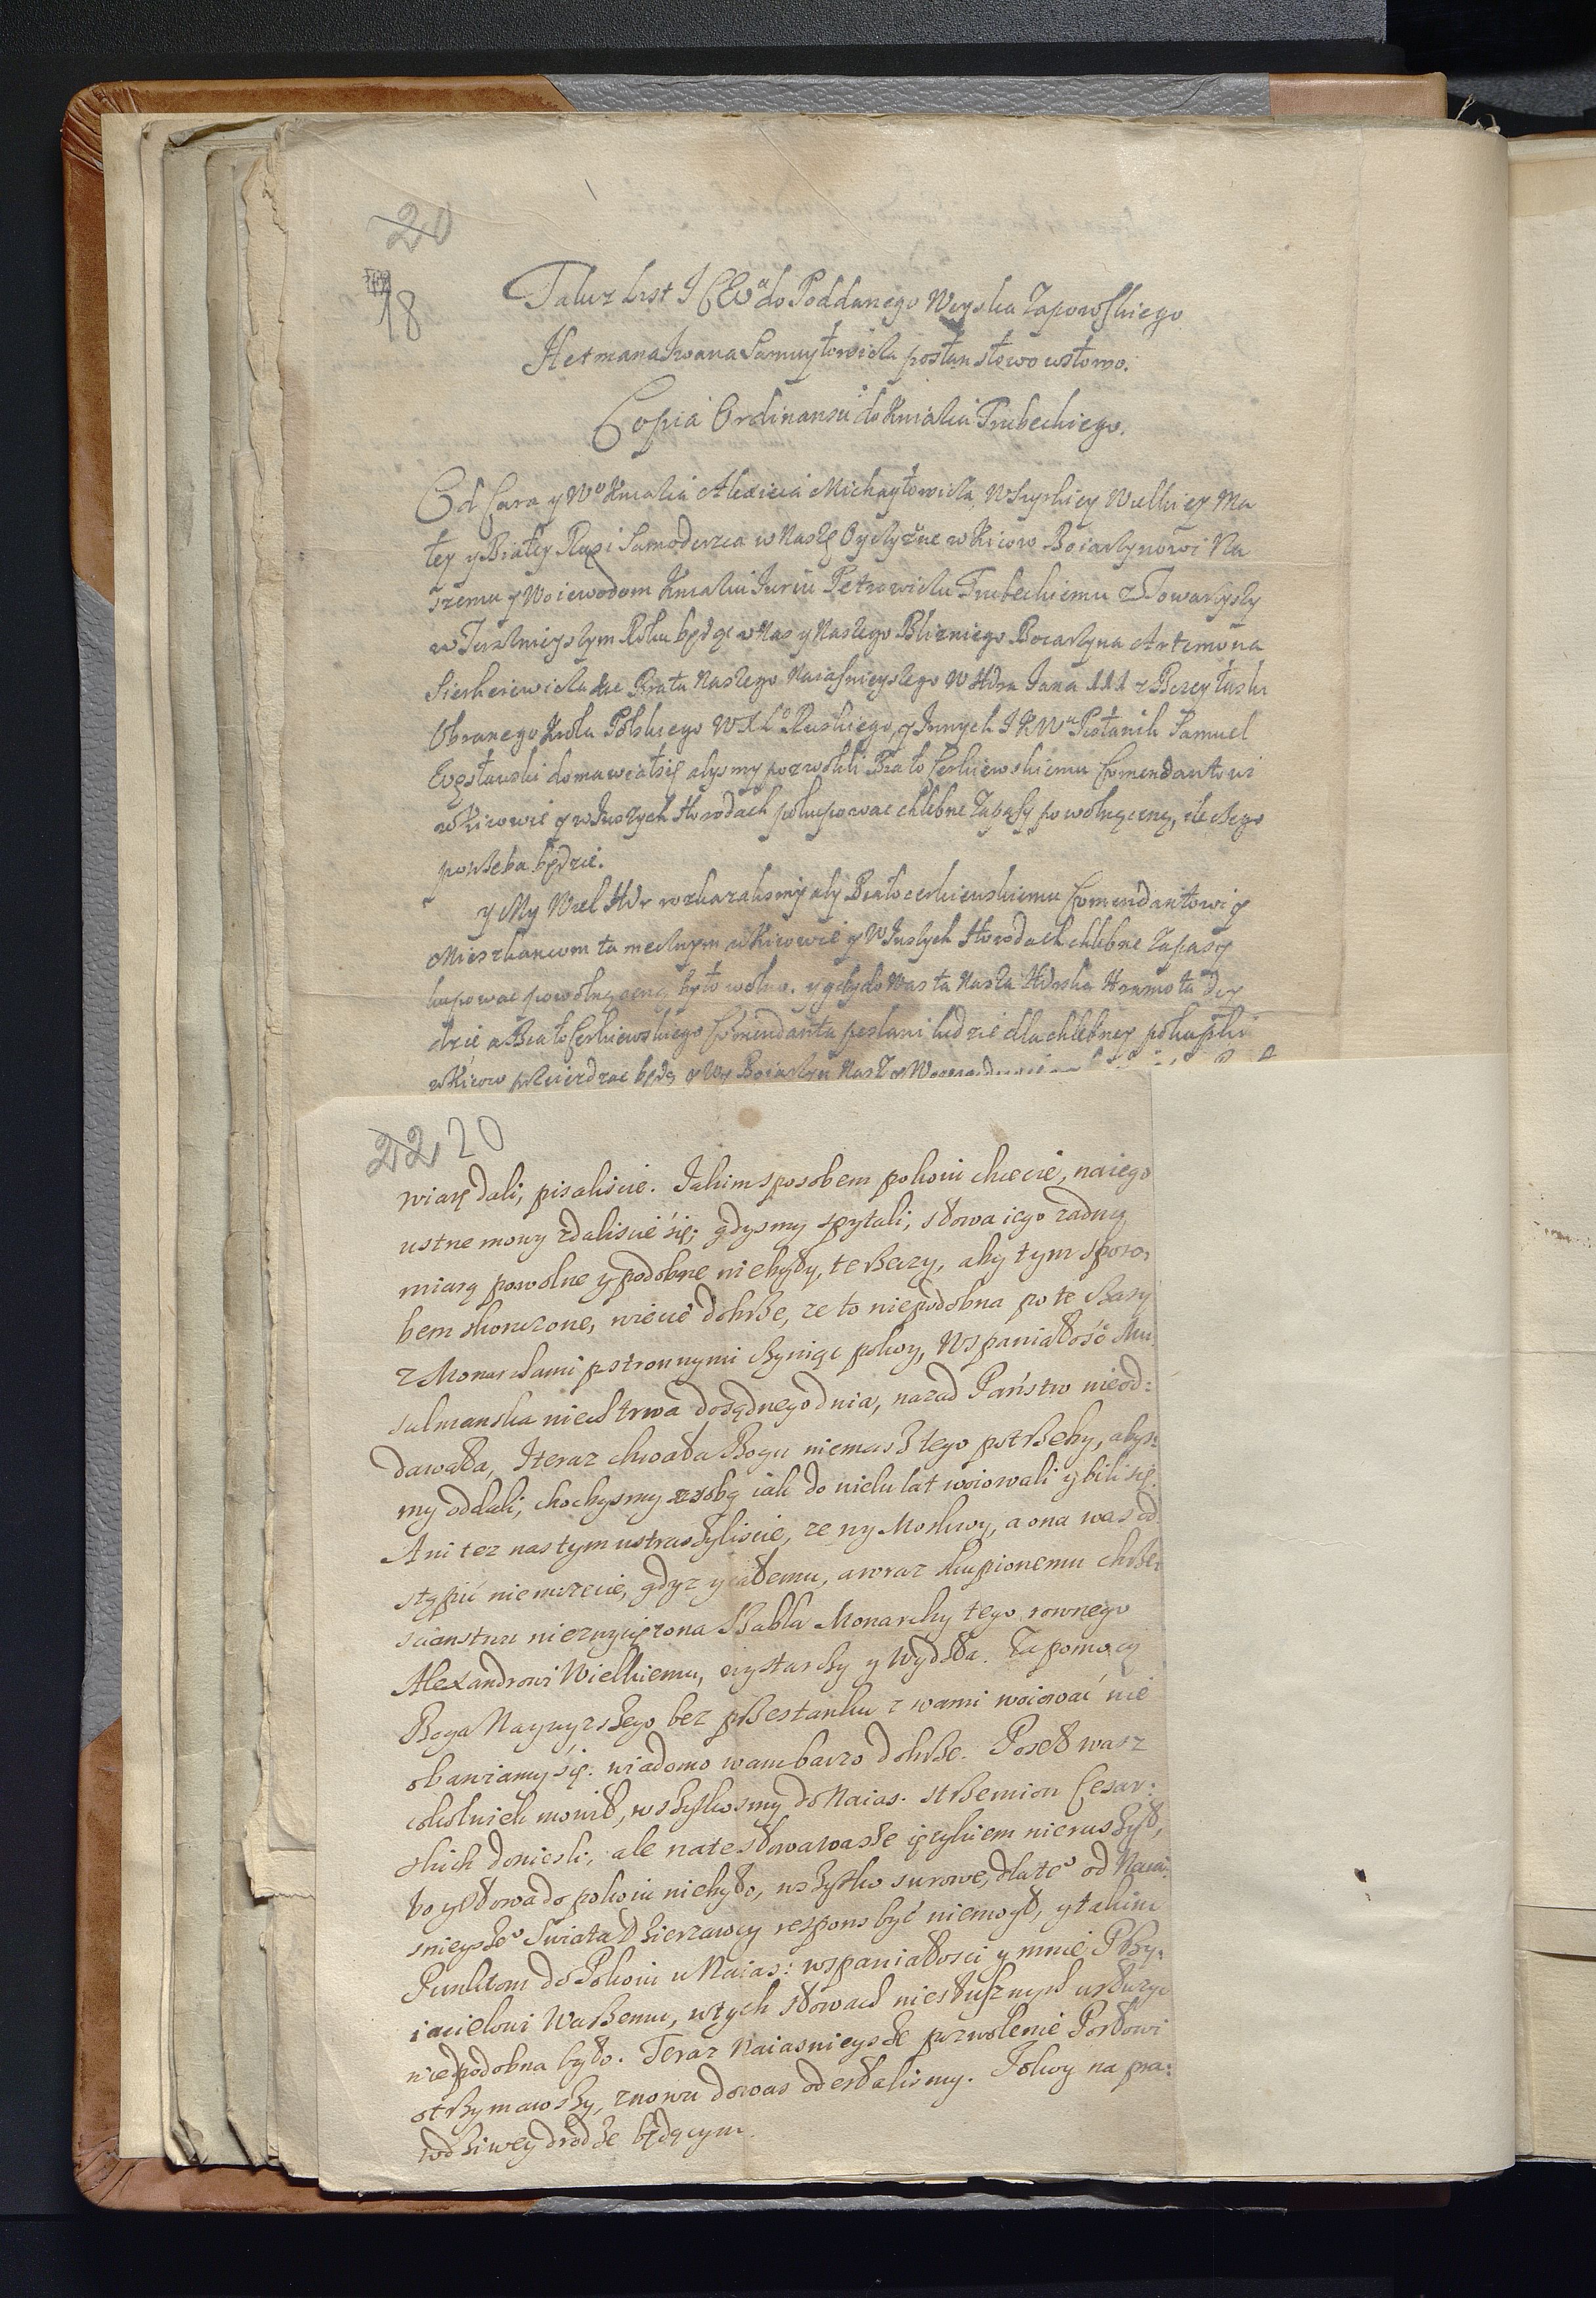 20
18
Takuz List J C W<sup>a</sup> do Poddanego Woyska Zaporowskiego
Hetmana Iwana Samuyłowicza posłan słowo w słowo.
Copia Ordinansu do Kniazia Trubeckiego.
Od Cara y W<sup>o</sup> Kniazia Alexieia Michayłowicza, Wszyskiey Wielkiey Ma
łey y Białey Rusi Samoderzca w Naszę Oyczyznę w Kiiow Boiarzynowi Na
szemu y Woiewodom Kniaziu Juriu Petrowiczu Trubeckiemu z Towarzyszy
w Teraznieyszym Roku będąc u Nas y Naszego Blizniego Boiarzyna Artemona
Sierheiewicza Brata Naszego Naiasnieyszego W Hdra Jana III z Bożey łaski
Obranego Krola Polskiego W X L<sup>o</sup> Ruskiego, y Innych J K W<sup>a</sup> Posłanik Samuel
domawiał się abysmy pozwolili Białocerkiewskiemu Comendantowi
w Kiiowie y w Inszych Horodach pokupować chlebne Zapasy po wolney ceny, ile czego
potrzeba będzie.
y My Wiel Hdr rozkazalismy aby Białocerkiewskiemu Comendantowi y
Mieszkancom tamecznym w Kiiowie y W Inszych Horodach chlebne Zapasy
kupować po wolney ceny było wolno. y gdy do Was ta Nasza Hdrska Hramota doy
dzie a Białocerkiewskiego Comendanta posłani ludzie dla chlebney pokupki
w Kiiow przyiezdzać będą y Wy Boiarzyn Nasz y
22 20
wiarę dali, pisaliscie. Jakim sposobem pokoiu chcecie, na iego
ustne mowy zdaliscie się; gdysmy spytali, słowa iego żadną
miarą powolne y podobne niebyły, te rzeczy, aby tym sposo,
bem skonczone, wiecie dobrze, ze to niepodobna po te czasy
z Monarchami postronnymi czyniąc pokoy, Wspaniałość Mu
sulmanska niech trwa do sądnego dnia, nazad Państw nieod:
dawała, I teraz chwała Bogu niemasz tego potrzeby, abys:
my oddali, chocbysmy z sobą iak do wielu lat woiowali y bili się.
Ani tez nas tym ustraszyliscie, ze wy Moskwy, a ona was od
stąpić niemożecie, gdyz y całemu, a wraz skupionemu chrze:
scianstwu niezwyciężona Szabla Monarchy tego rownego
Alexandrowi Wielkiemu, wystarczy y Wydoła. Za pomocą
Boga Naywyzszego bez przestanku z wami woiować nie
obawiamy się. wiadomo wam barzo dobrze. Poseł wasz
cokolwiek mowił, wszystkosmy do Naias. strzemion Cesar:
skich donieśli, ale na te słowa wasze ięzykiem nieruszył,
bo y słowa do pokoiu niebyło, wszystko surowe, dla te<sup>o</sup> od Naia:
snieysze<sup>o</sup> Swiata Dzierzawcy respons być niemogł, y takim
Punktom do Pokoiu u Naias: wspaniałosci y mnie Przy,
iacielowi Waszemu, w tych słowach niesłusznych usłuzyc
niepodobna było. Teraz Naiasnieysze pozwolenie Posłowi
otrzymawszy, znowu do was odesłalismy. Pokoy na pra:
wdziwey drodze będącym.